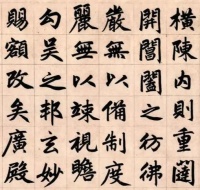 橫陳內則重闥
開閶闔之彷彿
嚴無以備制度
麗無以竦視瞻
勾吳之邦玄妙
賜額改矣廣殿